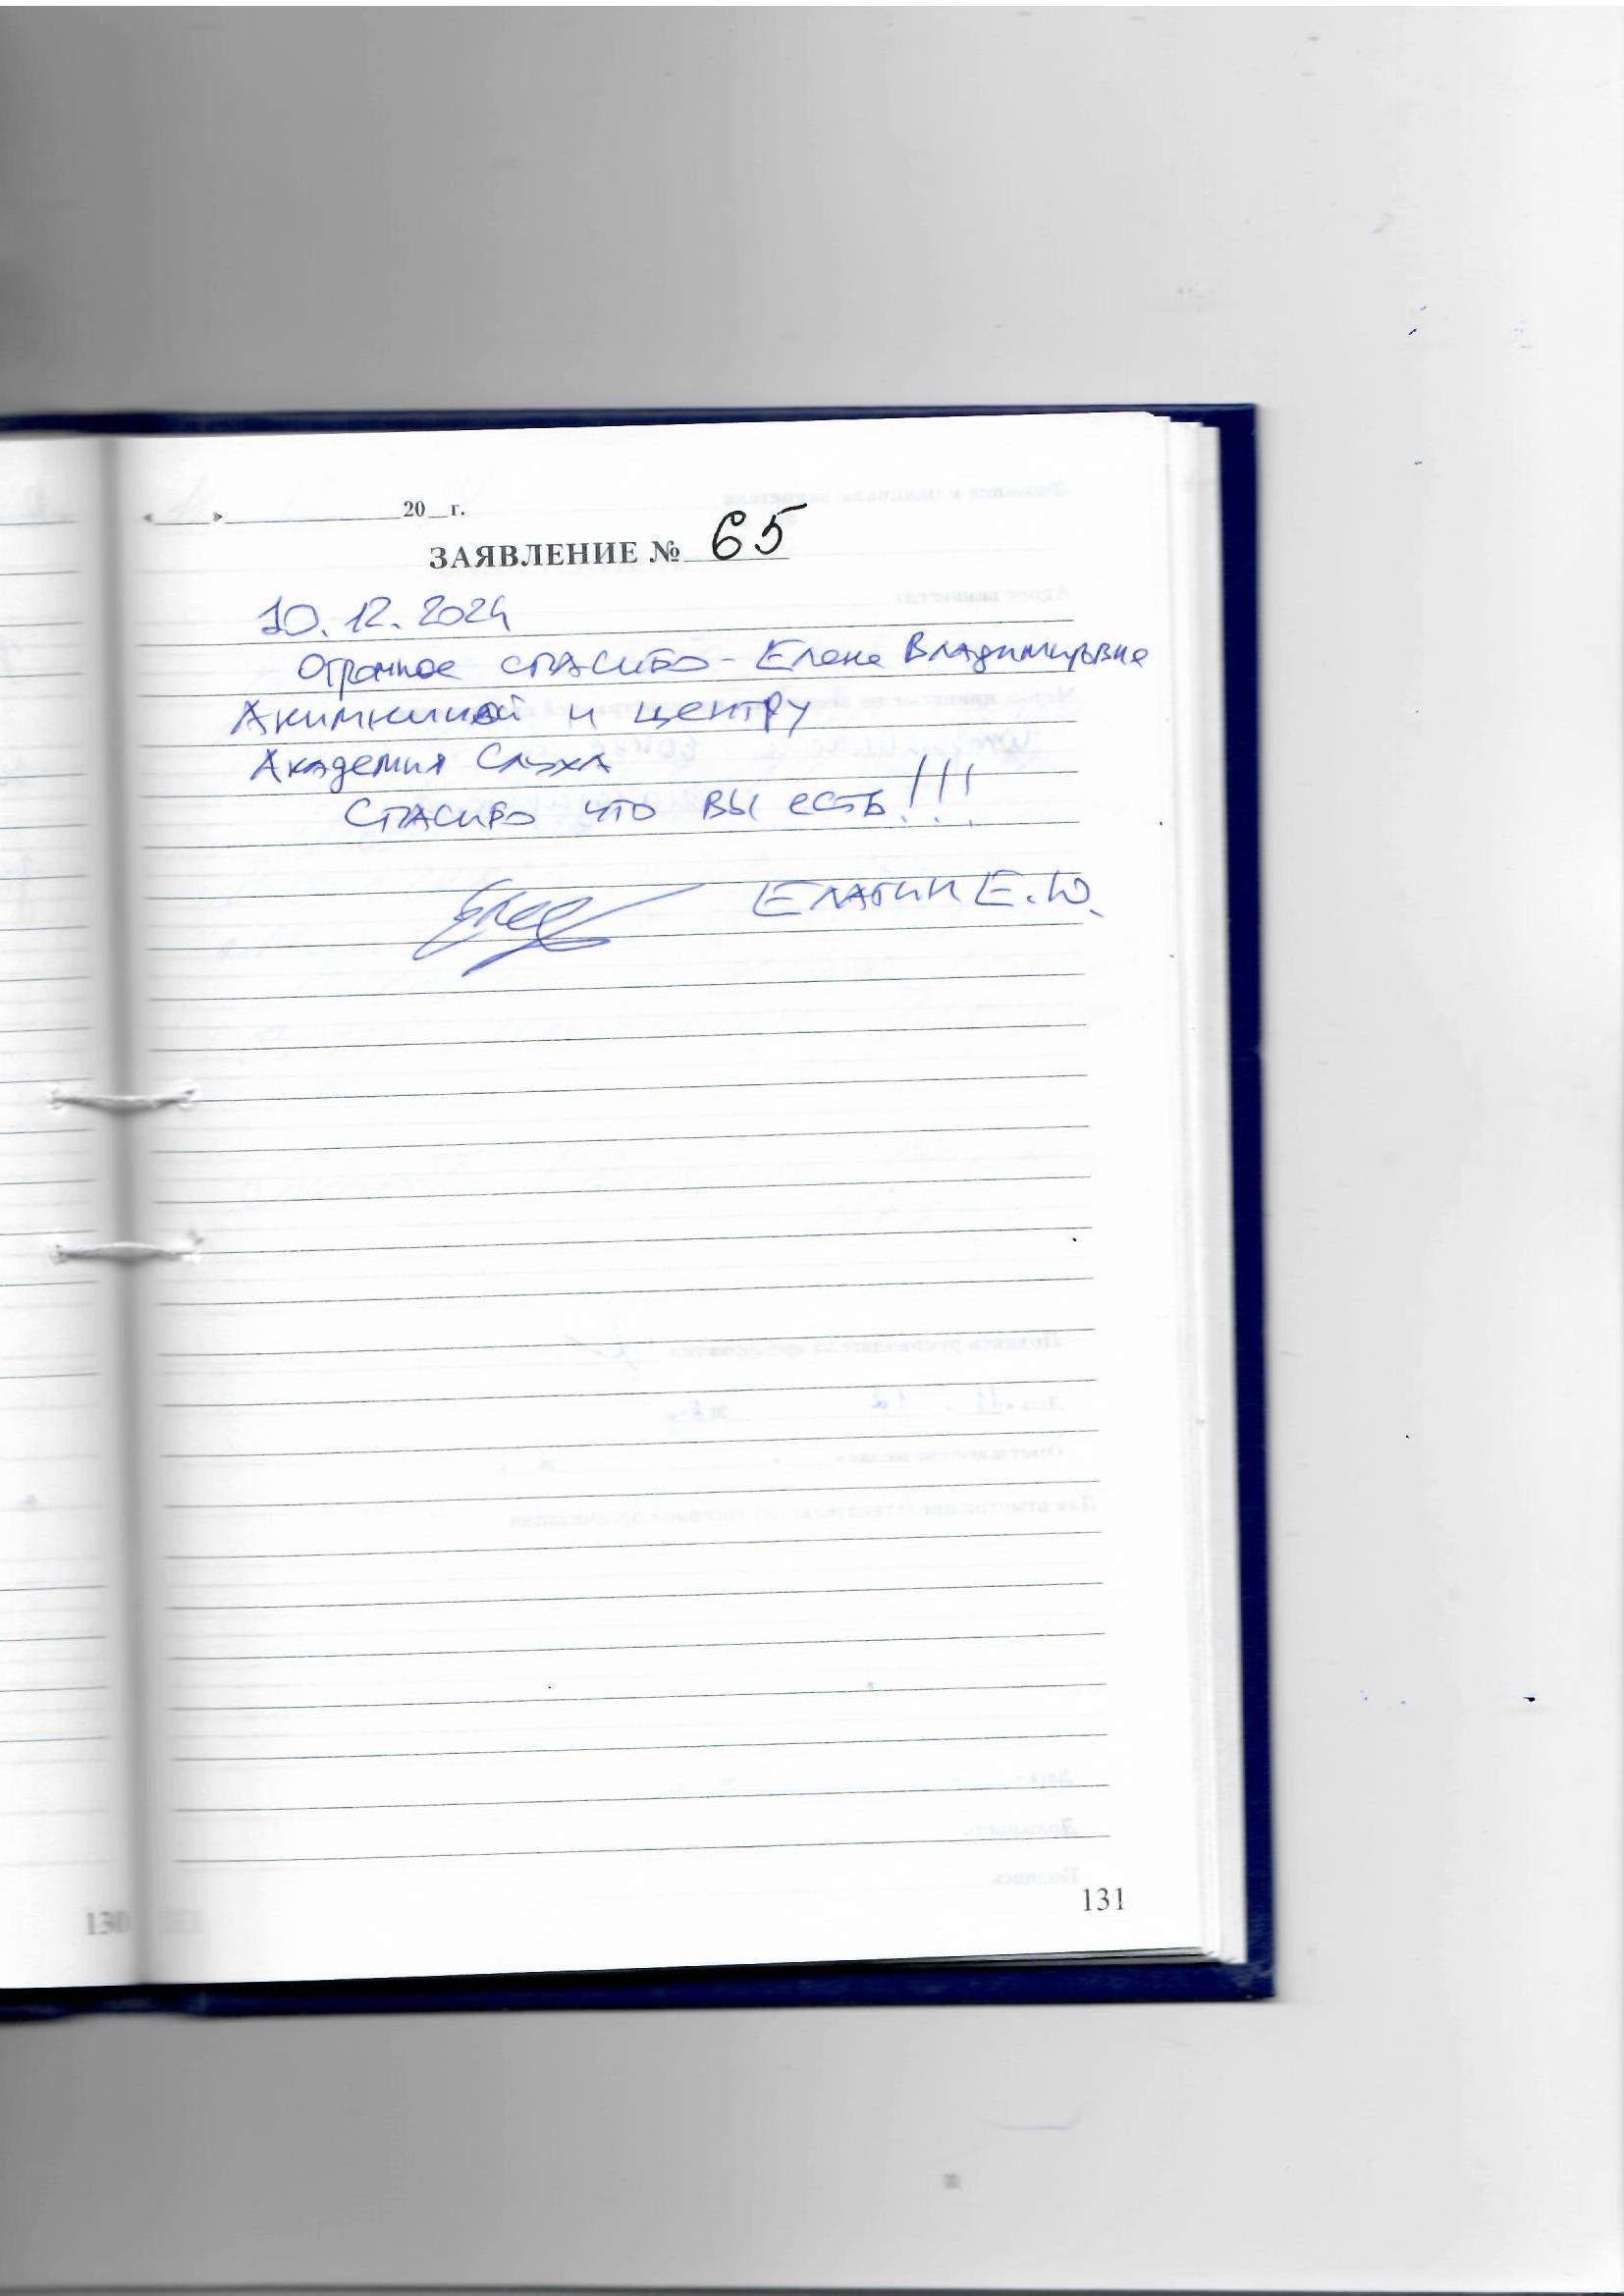 «____»______________20__г.
ЗАЯВЛЕНИЕ № 65
10.12.2024
Огромное спасибо - Елене Владимировне
Акимкиной и центру
Академия Слуха
Спасибо что вы есть!!!
Елагин Е.Ю.
130
131